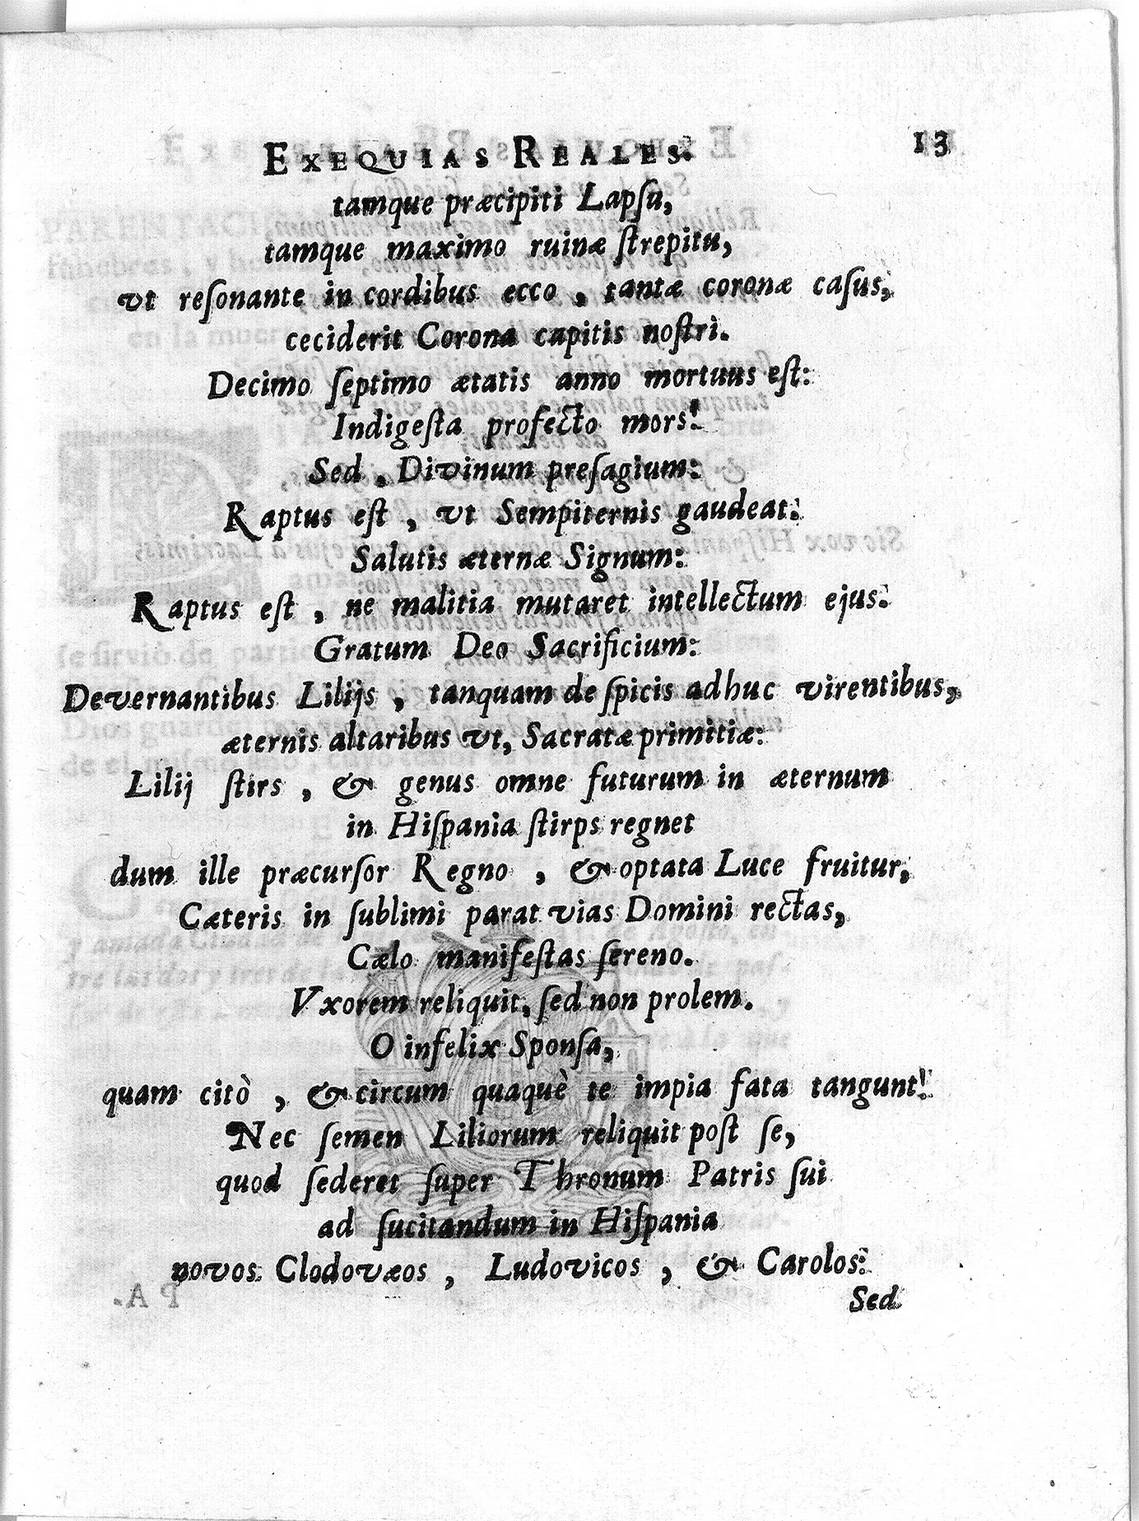 EXEQUIAS REALES. 13
tamque præcipiti Lapſu,
tamque maximo ruinæ ſtrepitu,
vt reſonante in cordibus ecco , tantæ coronæ caſus,
ceciderit Corona capitis noſtri.
Decimo ſeptimo ætatis anno mortuus eſt:
Indigeſta profecto mors!
Sed , Divinum preſagium:
Raptus eſt , vt Sempiternis gaudeat:
Salutis æternæ Signum:
Raptus eſt , ne malitia mutaret intellectum ejus:
Gratum Deo Sacrificium:
Devernantibus Lilijs , tanquam de ſpicis adhuc virentibus,
æternis altaribus vt, Sacratæ primitiæ:
Lilij ſtirs , & genus omne futurum in æternum
in Hiſpania ſtirps regnet
dum ille præcurſor Regno , & optata Luce fruitur,
Cæteris in ſublimi parat vias Domini rectas,
Cælo manifeſtas ſereno.
Vxorem reliquit, ſed non prolem.
O infelix Sponſa,
quam citò , & circum quaquè te impia fata tangunt!
Nec ſemen Liliorum reliquit poſt ſe,
quod ſederet ſuper Thronum Patris ſui
ad ſucitandum in Hiſpania
novos Clodovæos , Ludovicos , & Carolos:
Sed